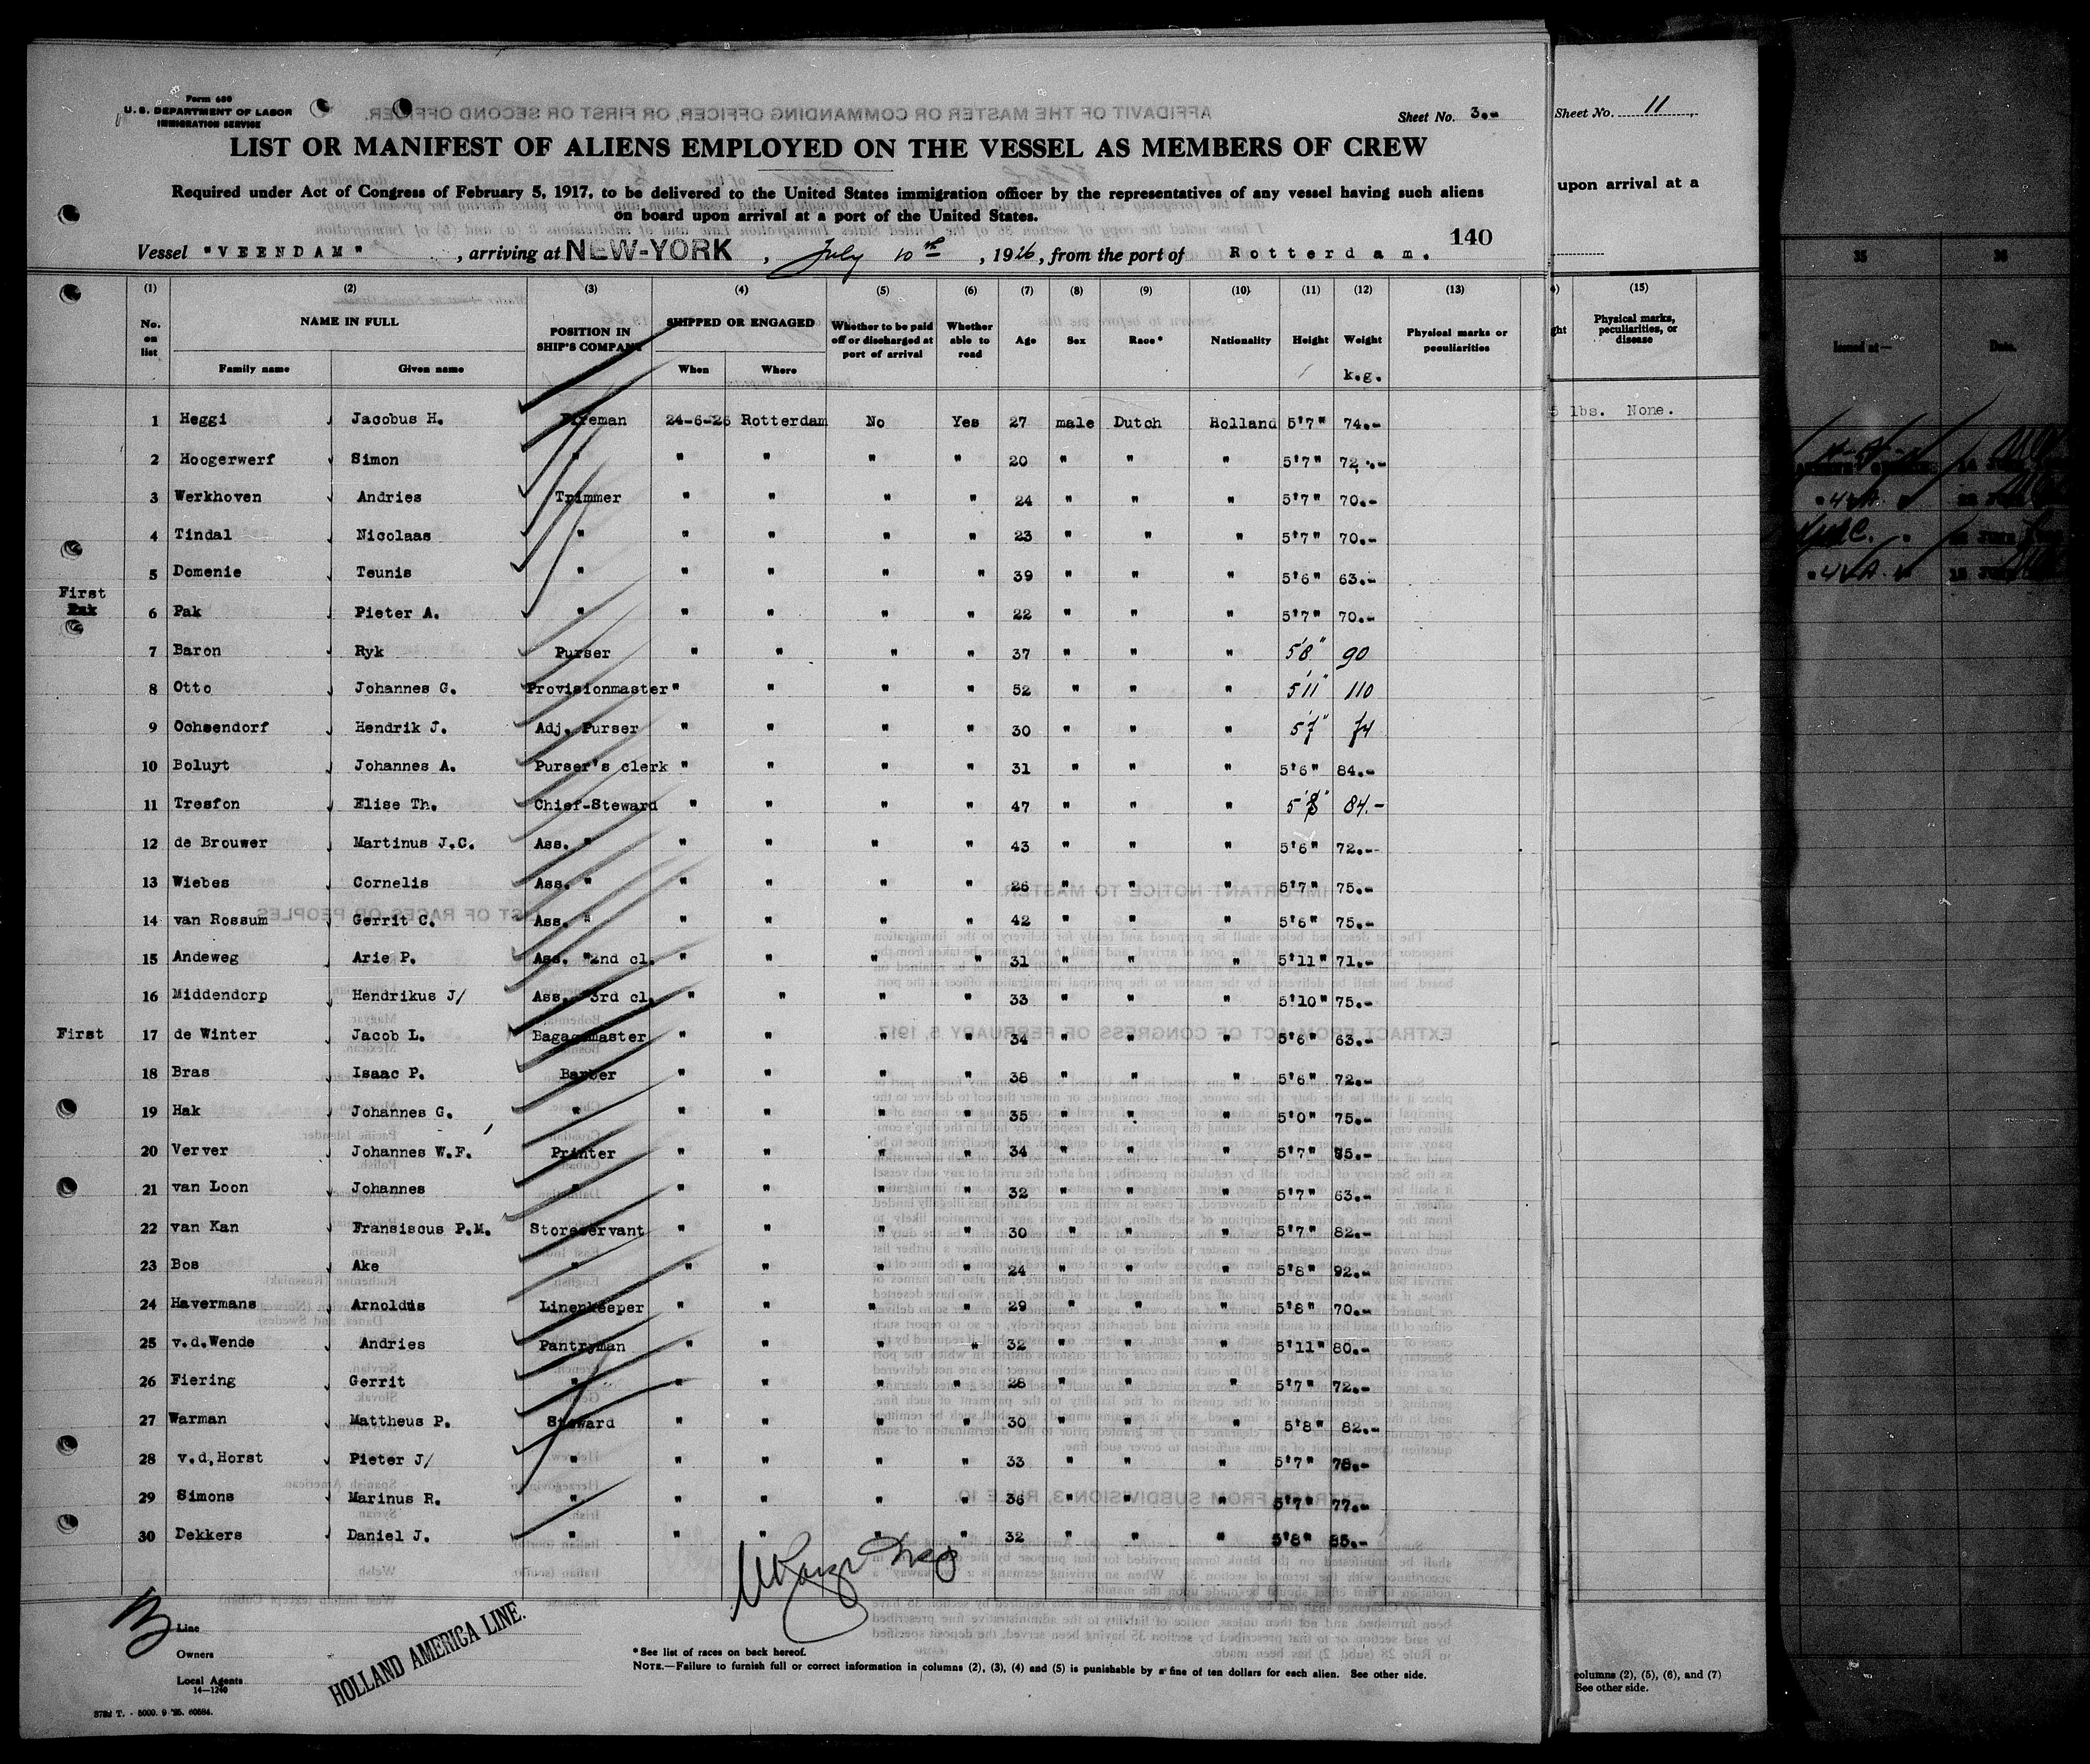 Form 689
U. S. DEPARTMENT OF LABOR
IMMIGRATION SERVICE
Sheet No. 3.-
LIST OR MANIFEST OF ALIENS EMPLOYED ON THE VESSEL AS MEMBERS OF CREW
Required under Act of Congress of February 5, 1917, to be delivered to the United States immigration officer by the representatives of any vessel having such aliens
on board upon arrival at a port of the United States.
140
Vessel "VEENDAM", arriving at NEW-YORK, July 10th, 1926, from the port of Rotterdam.
(1) (2) (3) (4) (5) (6) (7) (8) (9) (10) (11) (12) (13)
No. on list NAME IN FULL Family name Given name POSITION IN SHIP'S COMPANY SHIPPED OR ENGAGED When Where Whether to be paid off or discharged at port of arrival Whether able to read Age Sex Race* Nationality Height Weight k.g. Physical marks or peculiarities
1 Heggi Jacobus H. Fireman 24-6-26 Rotterdam No Yes 27 male Dutch Holland 5'7" 74.-
2 Hoogerwerf Simon " " " " " 20 " " " 5'7" 72.-
3 Werkhoven Andries Trimmer " " " " 24 " " " 5'7" 70.-
4 Tindal Nicolaas " " " " " 23 " " " 5'7" 70.-
5 Domenie Teunis " " " " " 39 " " " 5'6" 63.-
First
6 Pak Pieter A. " " " " " 22 " " " 5'7" 70.-
7 Baron Ryk Purser " " " " 37 " " " 5'8" 90
8 Otto Johannes G. Provisionmaster " " " " 52 " " " 5'11" 110
9 Ochsendorf Hendrik J. Adj. Purser " " " " 30 " " " 5'7" 74
10 Boluyt Johannes A. Purser's clerk " " " " 31 " " " 5'6" 84.-
11 Tresfon Elise Th. Chief-Steward " " " " 47 " " " 5'8" 84.-
12 de Brouwer Martinus J.C. Ass. " " " " " 43 " " " 5'6" 72.--
13 Wiebes Cornelis Ass. " " " " " 26 " " " 5'7" 75.-
14 van Rossum Gerrit C. Ass. " " " " " 42 " " " 5'6" 75.-
15 Andeweg Arie P. Ass. "2nd cl. " " " " 31 " " " 5'11" 71.-
16 Middendorp Hendrikus J/ Ass. "3rd cl. " " " " 33 " " " 5'10" 75.-
First 17 de Winter Jacob L. Bagagemaster " " " " 34 " " " 5'6" 63.-
18 Bras Isaac P. Barber " " " " 38 " " " 5'6" 72.-
19 Hak Johannes G. " " " " " 35 " " " 5'0" 75.-
20 Verver Johannes W.F. Printer " " " " 34 " " " 5'7" 75.-
21 van Loon Johannes " " " " " 32 " " " 5'7" 63.-
22 van Kan Fransiscus P.M. Storeservant " " " " 30 " " " 5'7" 82.-
23 Bos Ake " " " " " 24 " " " 5'8" 92.-
24 Havermans Arnoldus Linenkeeper " " " " 29 " " " 5'8" 70.-
25 v.d.Wende Andries Pantryman " " " " 32 " " " 5'11" 80.-
26 Fiering Gerrit " " " " " 28 " " " 5'7" 72.-
27 Warman Mattheus P. Steward " " " " 30 " " " 5'8" 82.-
28 v.d.Horst Pieter J/ " " " " " 33 " " " 5'7" 78.-
29 Simons Marinus R. " " " " " 36 " " " 5'7" 77.-
30 Dekkers Daniel J. " " " " " 32 " " " 5'8" 85.-
Line
Owners
Local Agents
14—1240
HOLLAND AMERICA LINE.
*See list of races on back hereof.
NOTE.—Failure to furnish full or correct information in columns (2), (3), (4) and (5) is punishable by a fine of ten dollars for each alien. See other side.
Sheet No. 11
upon arrival at a
(15)
Physical marks, peculiarities, or disease
lbs. None.
columns (2), (5), (6), and (7)
See other side.
35 36
Issued at— Date.